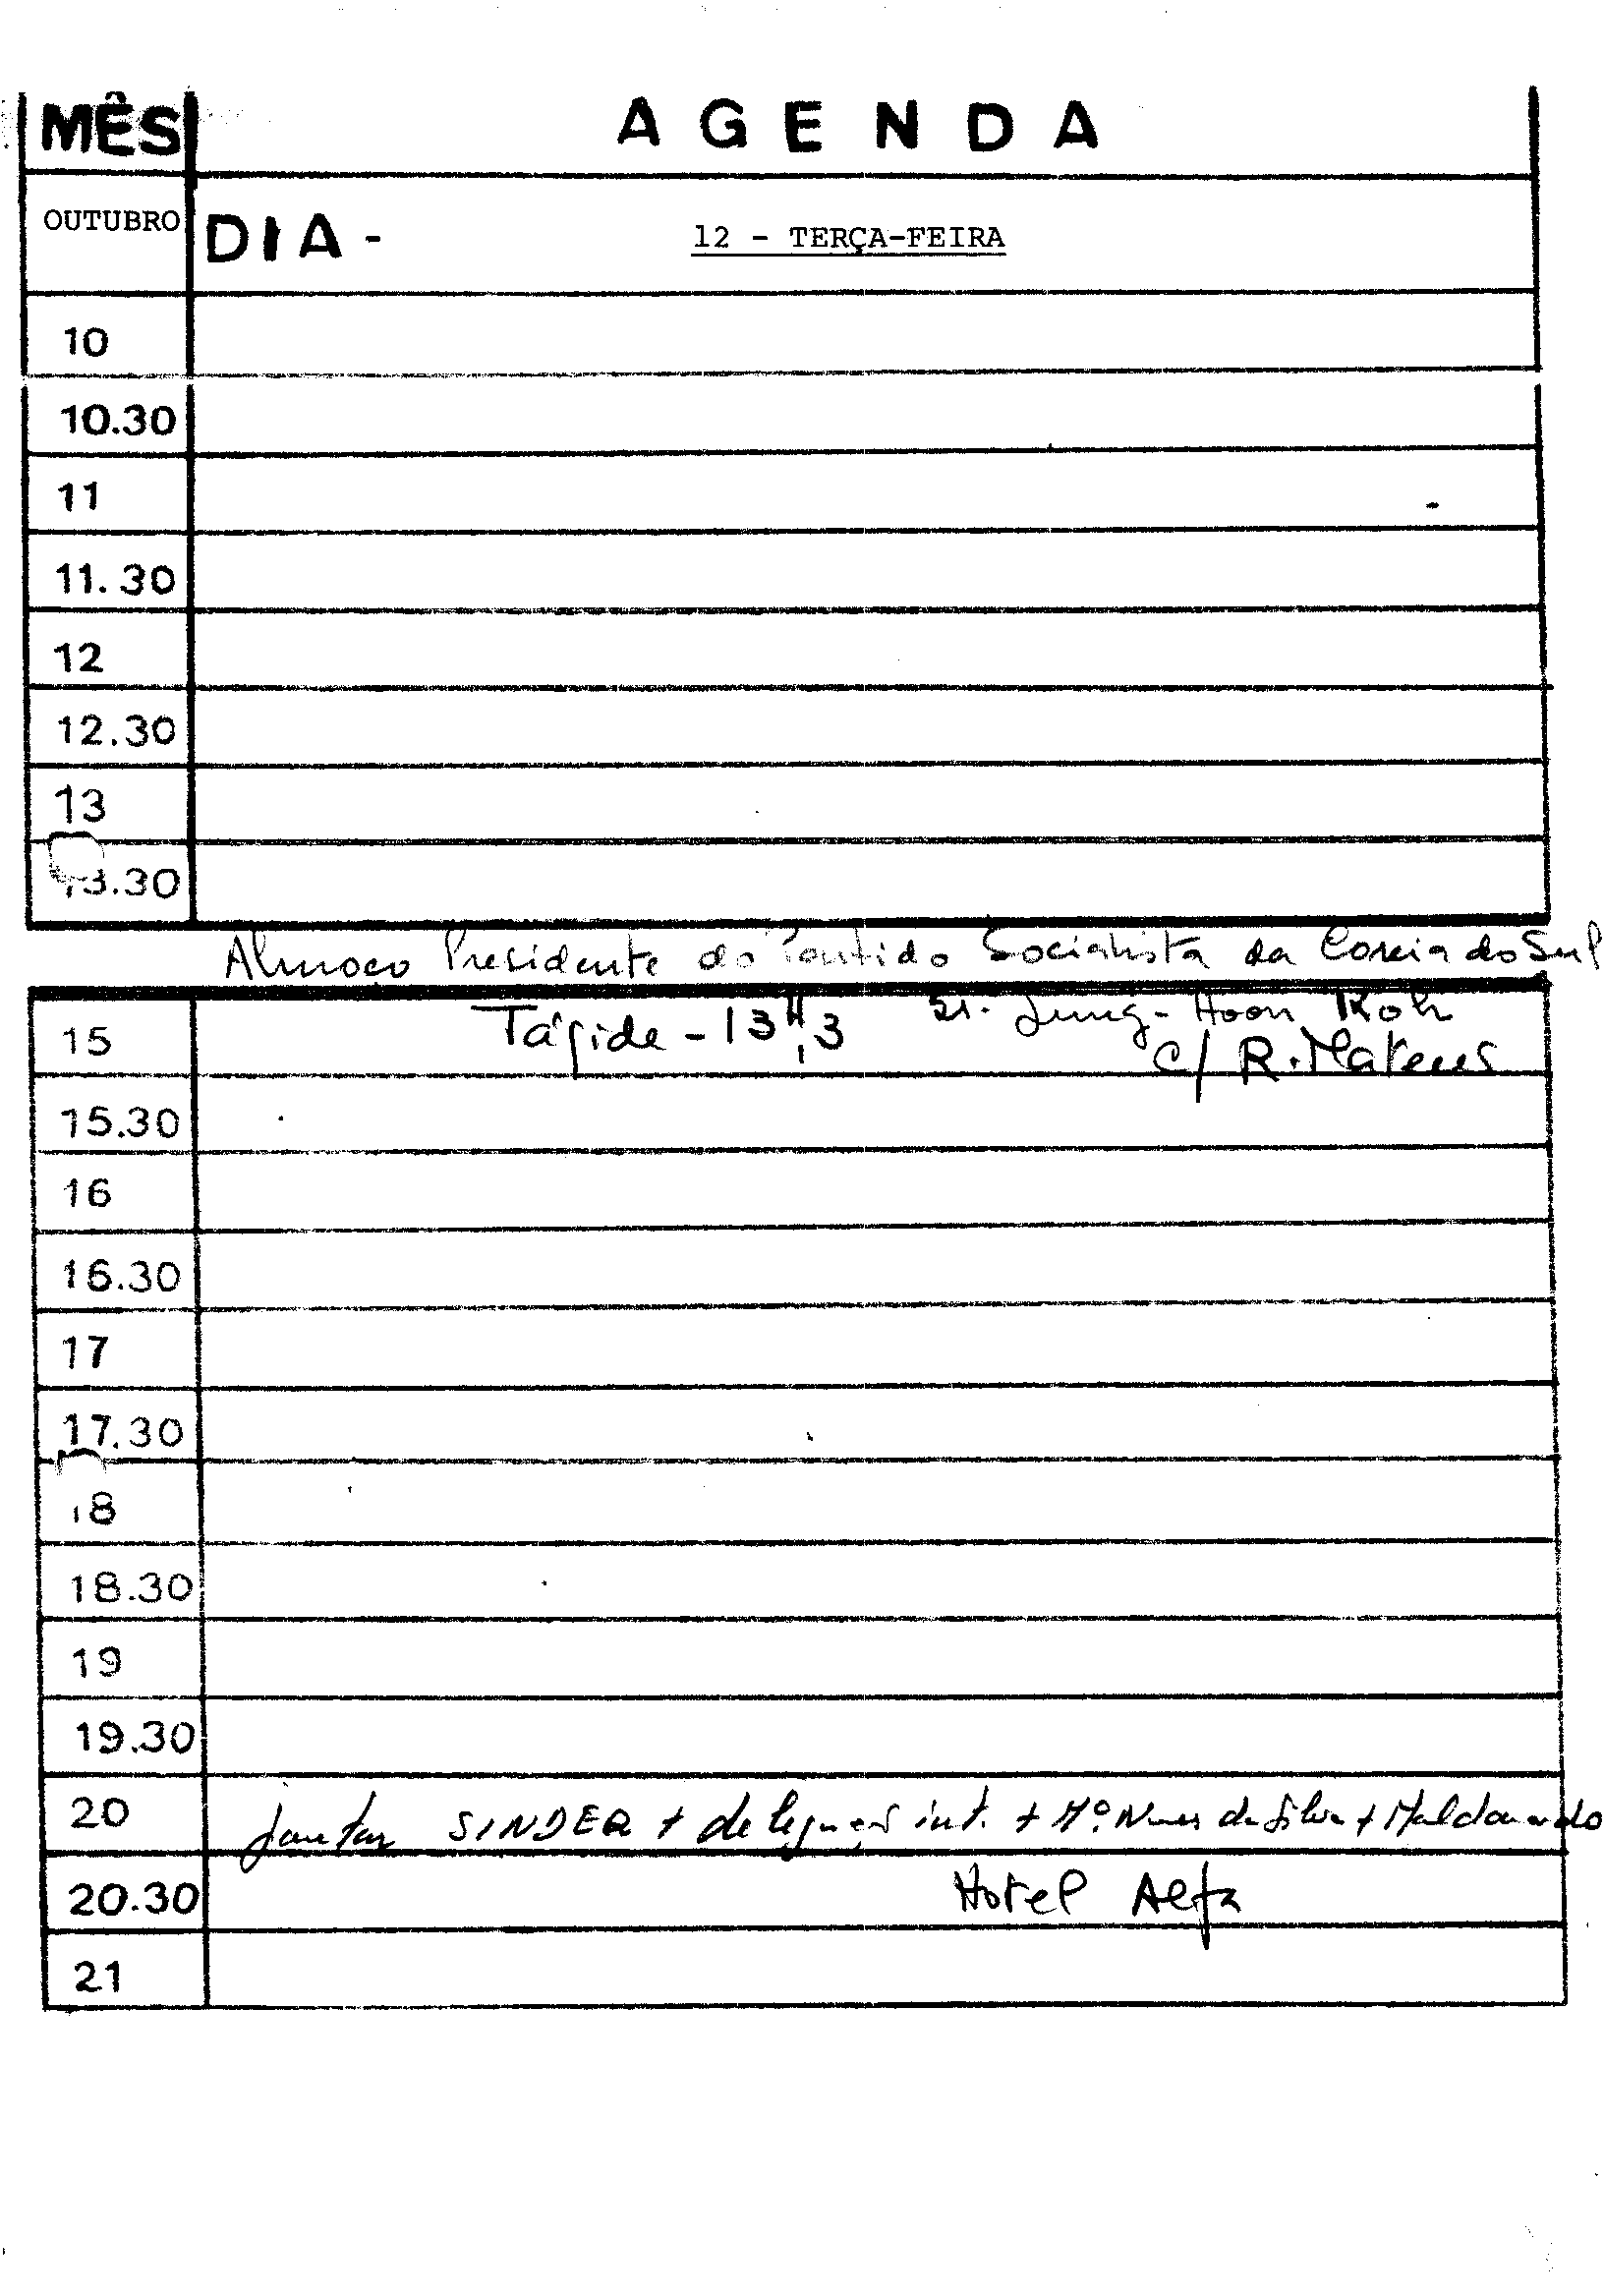 MÊS AGENDA
OUTUBRO DIA - 12 - TERÇA-FEIRA
10
10.30
11
11.30
12
12.30
13
13.30
Almoço Presidente do Partido Socialista da Coreia do Sul
Sr. Jung-Hoon Koh
15 Tágide - 13H,3
c/ R. Mateus
15.30
16
16.30
17
17.30
18
18.30
19
19.30
20 jantar SINDER + delegações int. + Mº. Nunes da Silva + Maldonado
20.30 Hotel Alfa
21